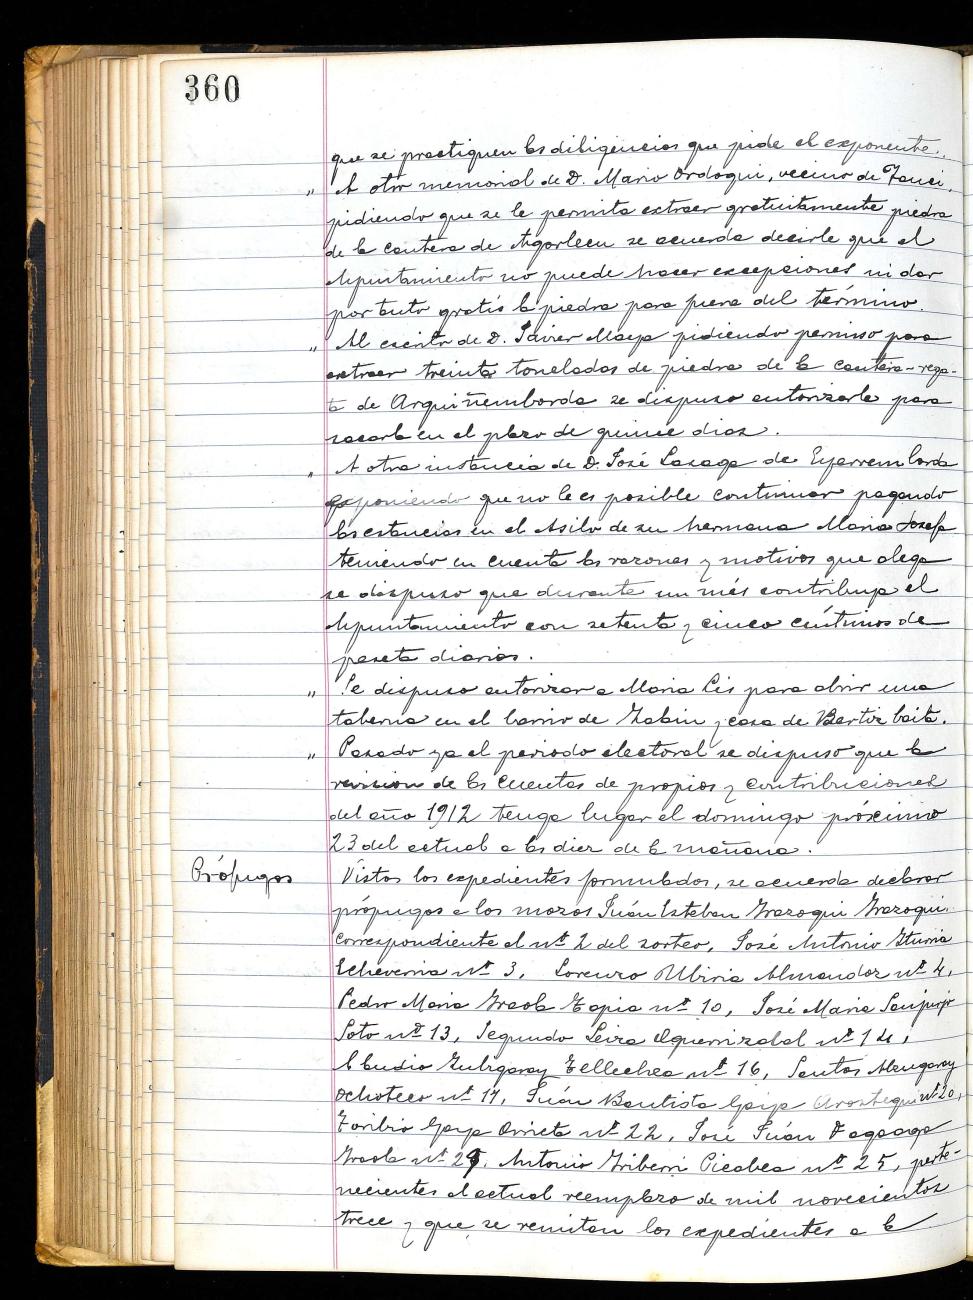 360
que se practiquen las diligencias que pide el exponente.
" A otro memorial de D. Mario Ordoqui, vecino de
pidiendo que se le permita extraer gratuitamente piedra
de la cantera de se acuerda decirle que el
Ayuntamiento no puede hacer excepciones ni dar
por tanto gratis la piedra para fuera del término.
" Al escrito de D. Javier Maya pidiendo permiso para
extraer treinta toneladas de piedra de la cantera-rega-
ta de Arquiñemborda se dispuso autorizarle para
sacarla en el plazo de quince dias.
" A otra instancia de D. José Lasaga de
exponiendo que no le es posible continuar pagando
las estancias en el Asilo de su hermana Maria Josefa
teniendo en cuenta las razones y motivos que alega
se dispuso que durante un més contribuya el
Ayuntamiento con setenta y cinco céntimos de
peseta diarios.
" Se dispuso autorizar a Maria para abrir una
taberna en el barrio de y casa de
" Pasado ya el periodo electoral se dispuso que la
revision de las cuentas de propios y contribuciones
del año 1912 tenga lugar el domingo próximo
23 del actual a las diez de la mañana.
Prófugos Vistos los expedientes formulados, se acuerda declarar
prófugos a los mozos Juán Esteban Yrazoqui Yrazoqui,
correspondiente el nº 2 del sorteo, José Antonio Yturria
Echeverria nº 3, Lorenzo Ubiria Almandoz nº 4,
Pedro Maria Yraola Tapia nº 10, José Maria Sanjurjo
Soto nº 13, Segundo Leiza Eguerrizabal nº 14,
Claudio Zubigaray Tellechea nº 16, Santos Alzugaray
Ochoteco nº 17, Juán Bautista Goya Aroztegui nº 20,
Toribio Goya Orrieta nº 22, José Juán Fagoaga
Yraola nº Antonio Yriberri Picabea nº 25, perte-
necientes al actual reemplazo de mil novecientos
trece y que se remitan los expedientes a la